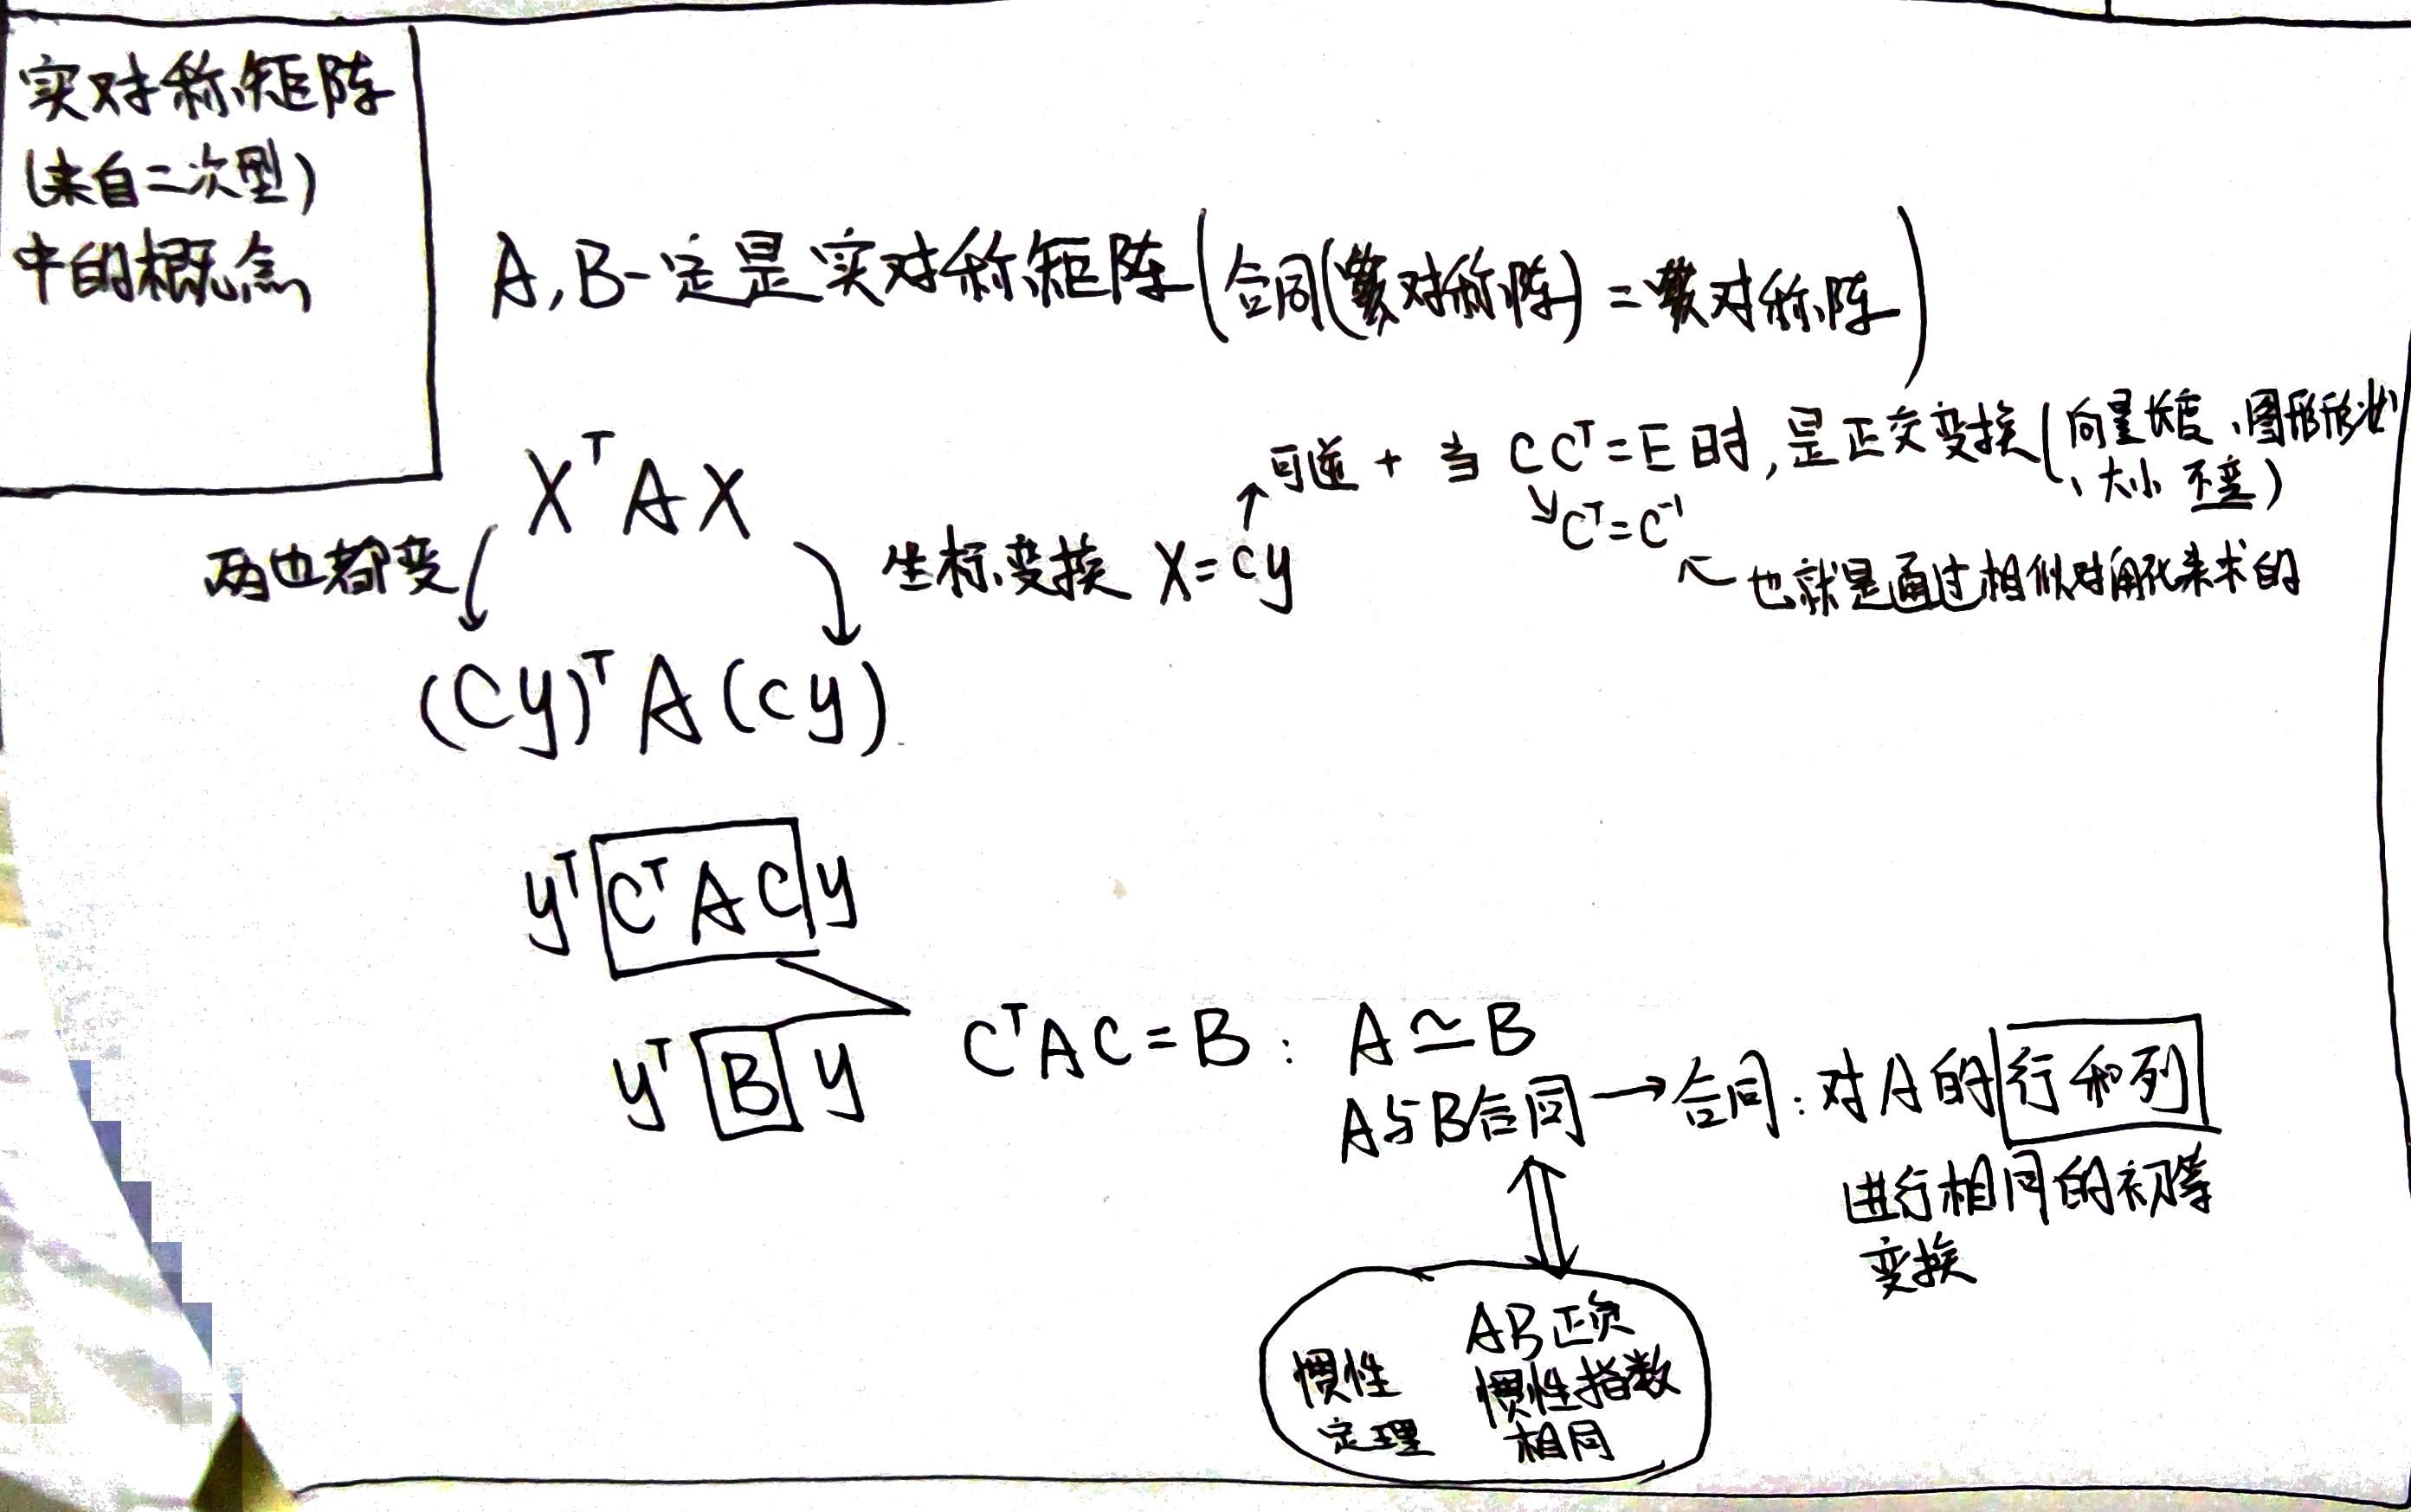 实对称矩阵
(来自二次型)
中的概念
A,B一定是实对称矩阵(合同(对称阵)=对称阵)
XᵀAX
两边都变
坐标变换 X=Cy
可逆 + 当 CCᵀ=E 时,是正交变换(向量长度、图形形状
、大小 不变)
Cᵀ=C⁻¹
也就是通过相似对角化来求的
(Cy)ᵀA(Cy)
yᵀCᵀACy
yᵀBy
CᵀAC=B: A≃B
A与B合同→合同:对A的行和列
进行相同的初等
变换
惯性
定理
AB正负
惯性指数
相同